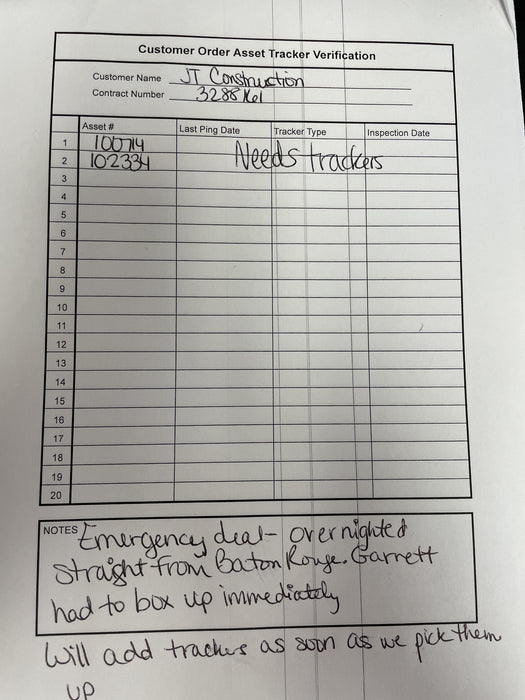 Customer Order Asset Tracker Verification
Customer Name JT Construction
Contract Number 3288
Asset # Last Ping Date Tracker Type Inspection Date
1 100714 Needs trackers
2 102334
3
4
5
6
7
8
9
10
11
12
13
14
15
16
17
18
19
20
NOTES Emergency deal- overnighted
straight from Baton Rouge. Garrett
had to box up immediately
Will add trackers as soon as we pick them
up